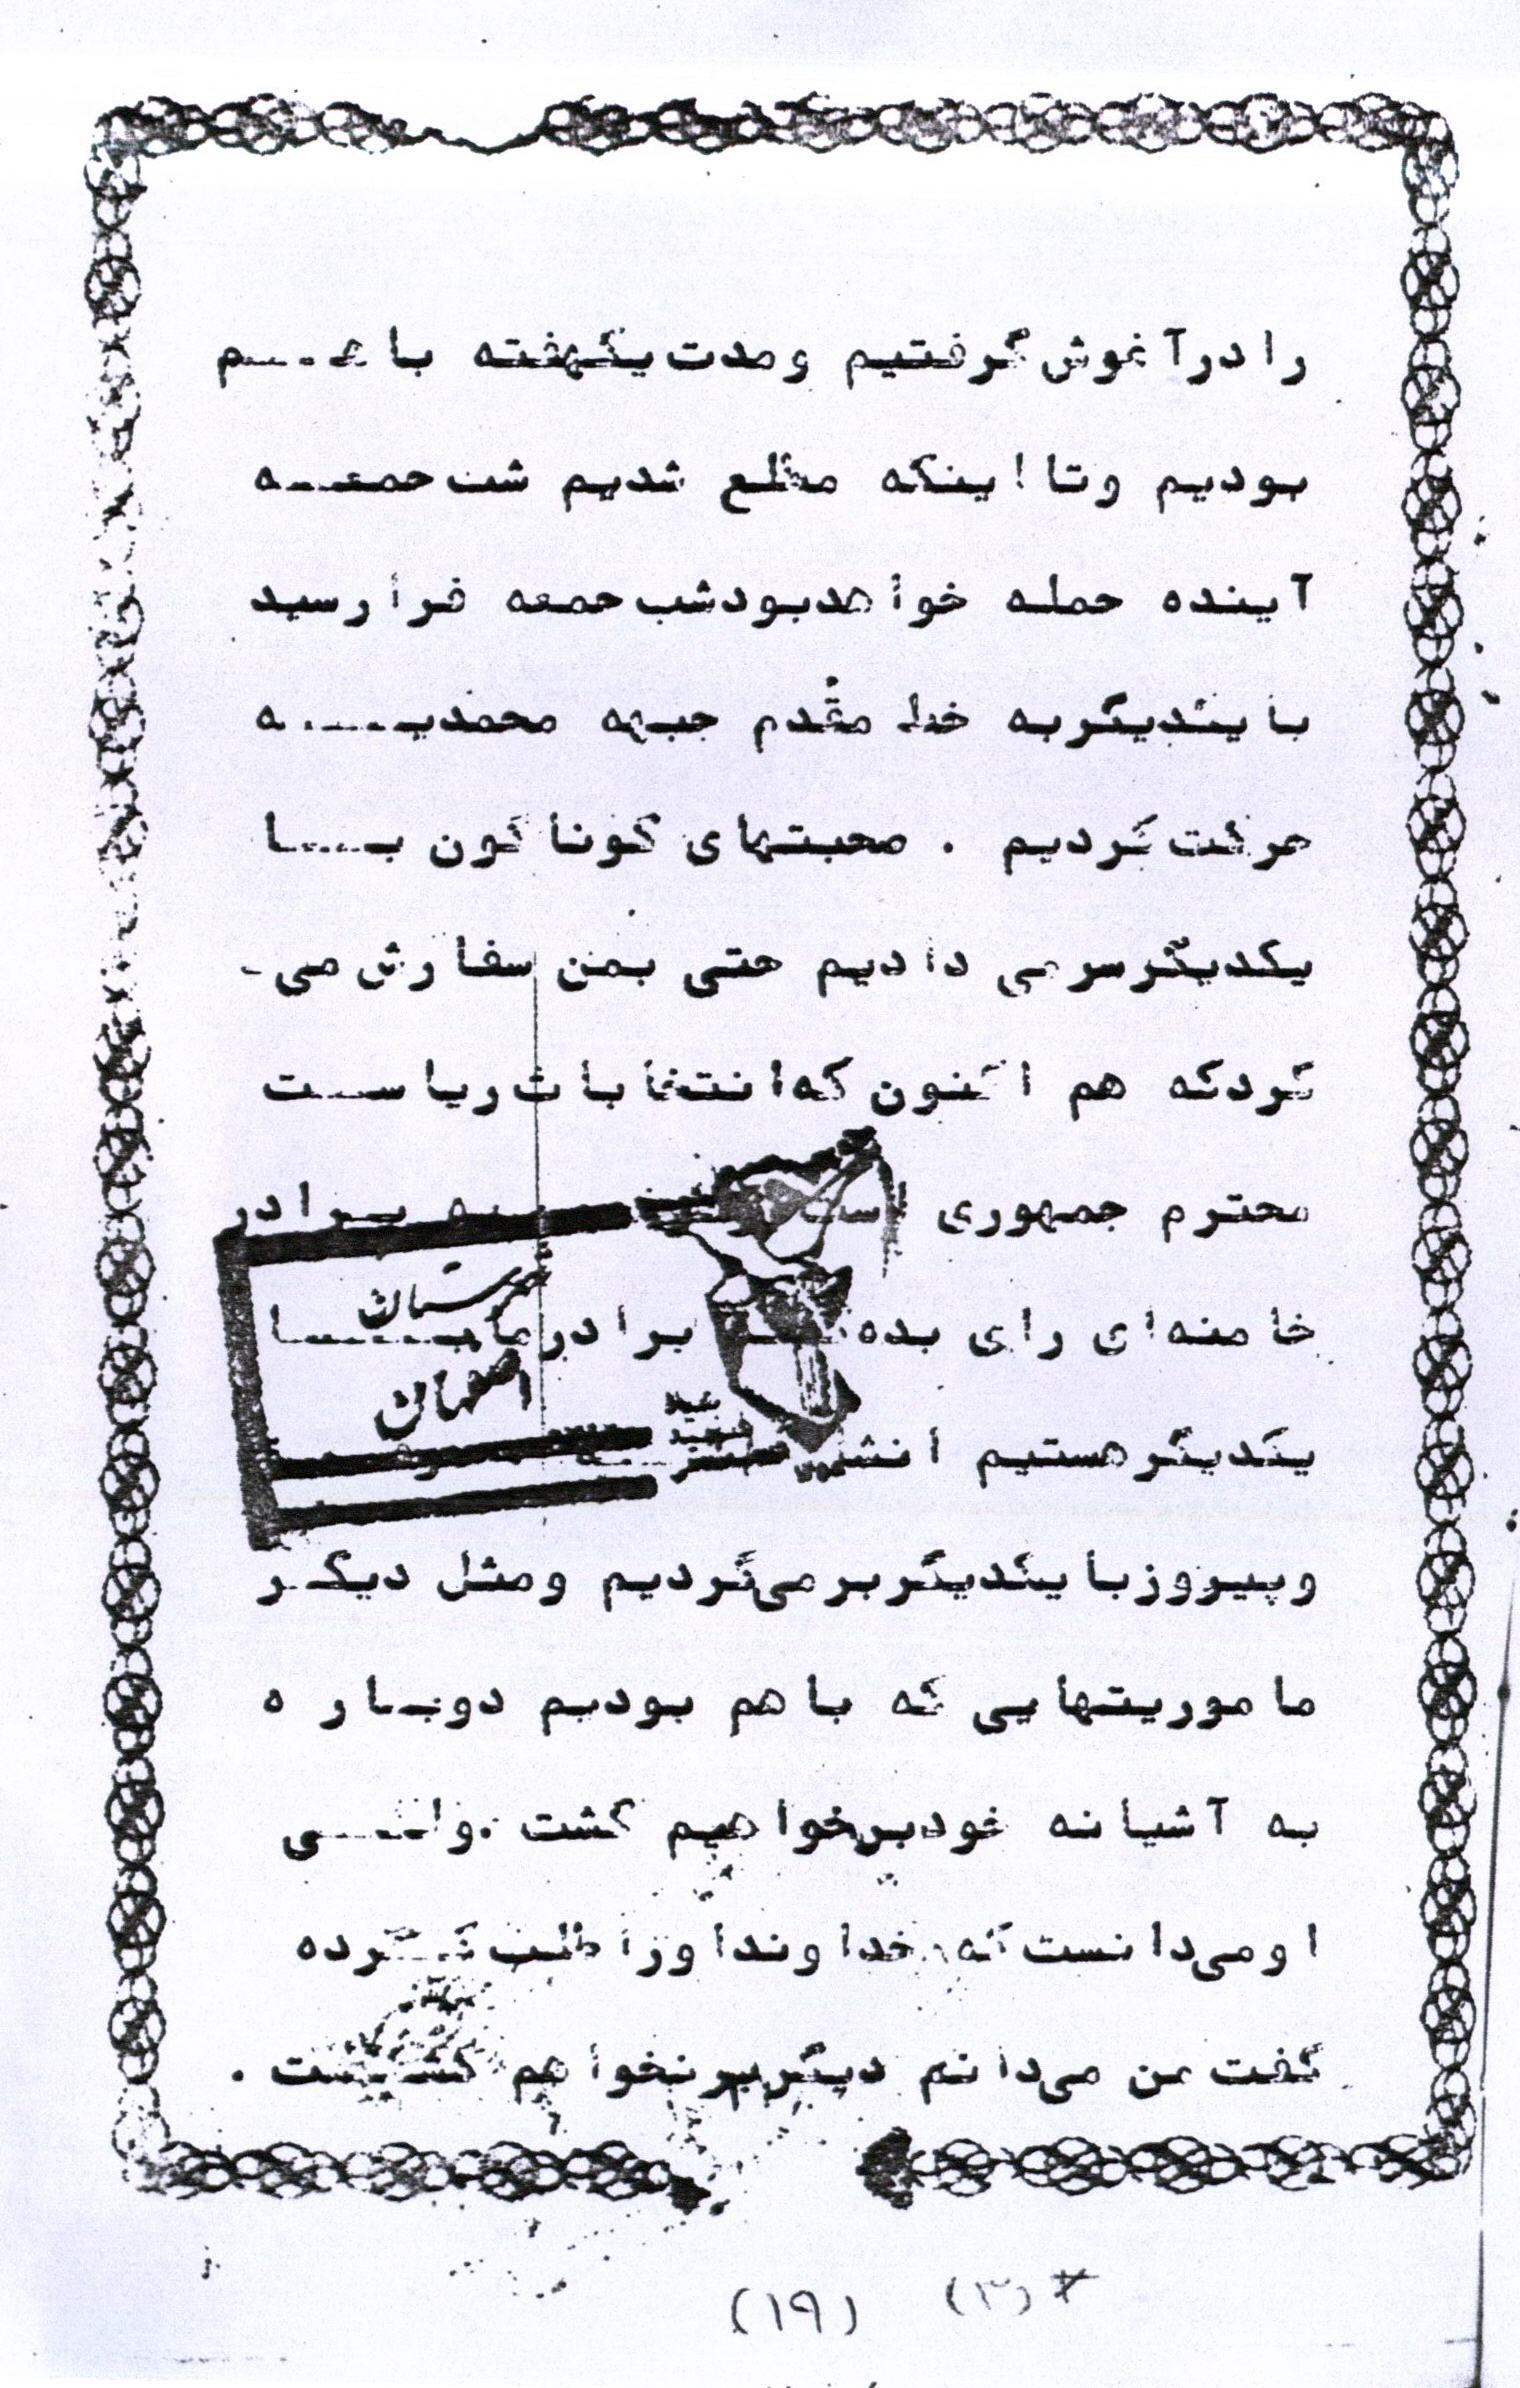 را در آغوش گرفتیم و مدت یکهفته با هم
بودیم و تا اینکه مطلع شدیم شب جمعه
آینده حمله خواهد بود شب جمعه فرا رسید
با یکدیگر به خط مقدم جبهه محمدیه
حرکت کردیم . صحبتهای گوناگون با
یکدیگر سر می دادیم حتی بمن سفارش می-
کرد که هم اکنون که انتخابات ریاست
محترم جمهوری است به برادر
خامنه‌ای رای بده برادر ما با
یکدیگر هستیم
و پیروز با یکدیگر بر می‌گردیم و مثل دیگر
ماموریتهایی که با هم بودیم دوباره
به آشیانه خود بر خواهیم گشت . ولی
او می‌دانست که خداوند او را طلب کرده
گفت من می‌دانم دیگر بر نخواهم گشت .
شهرستان
اصفهان
بنیاد
شهید
(۱۹) (۳) *